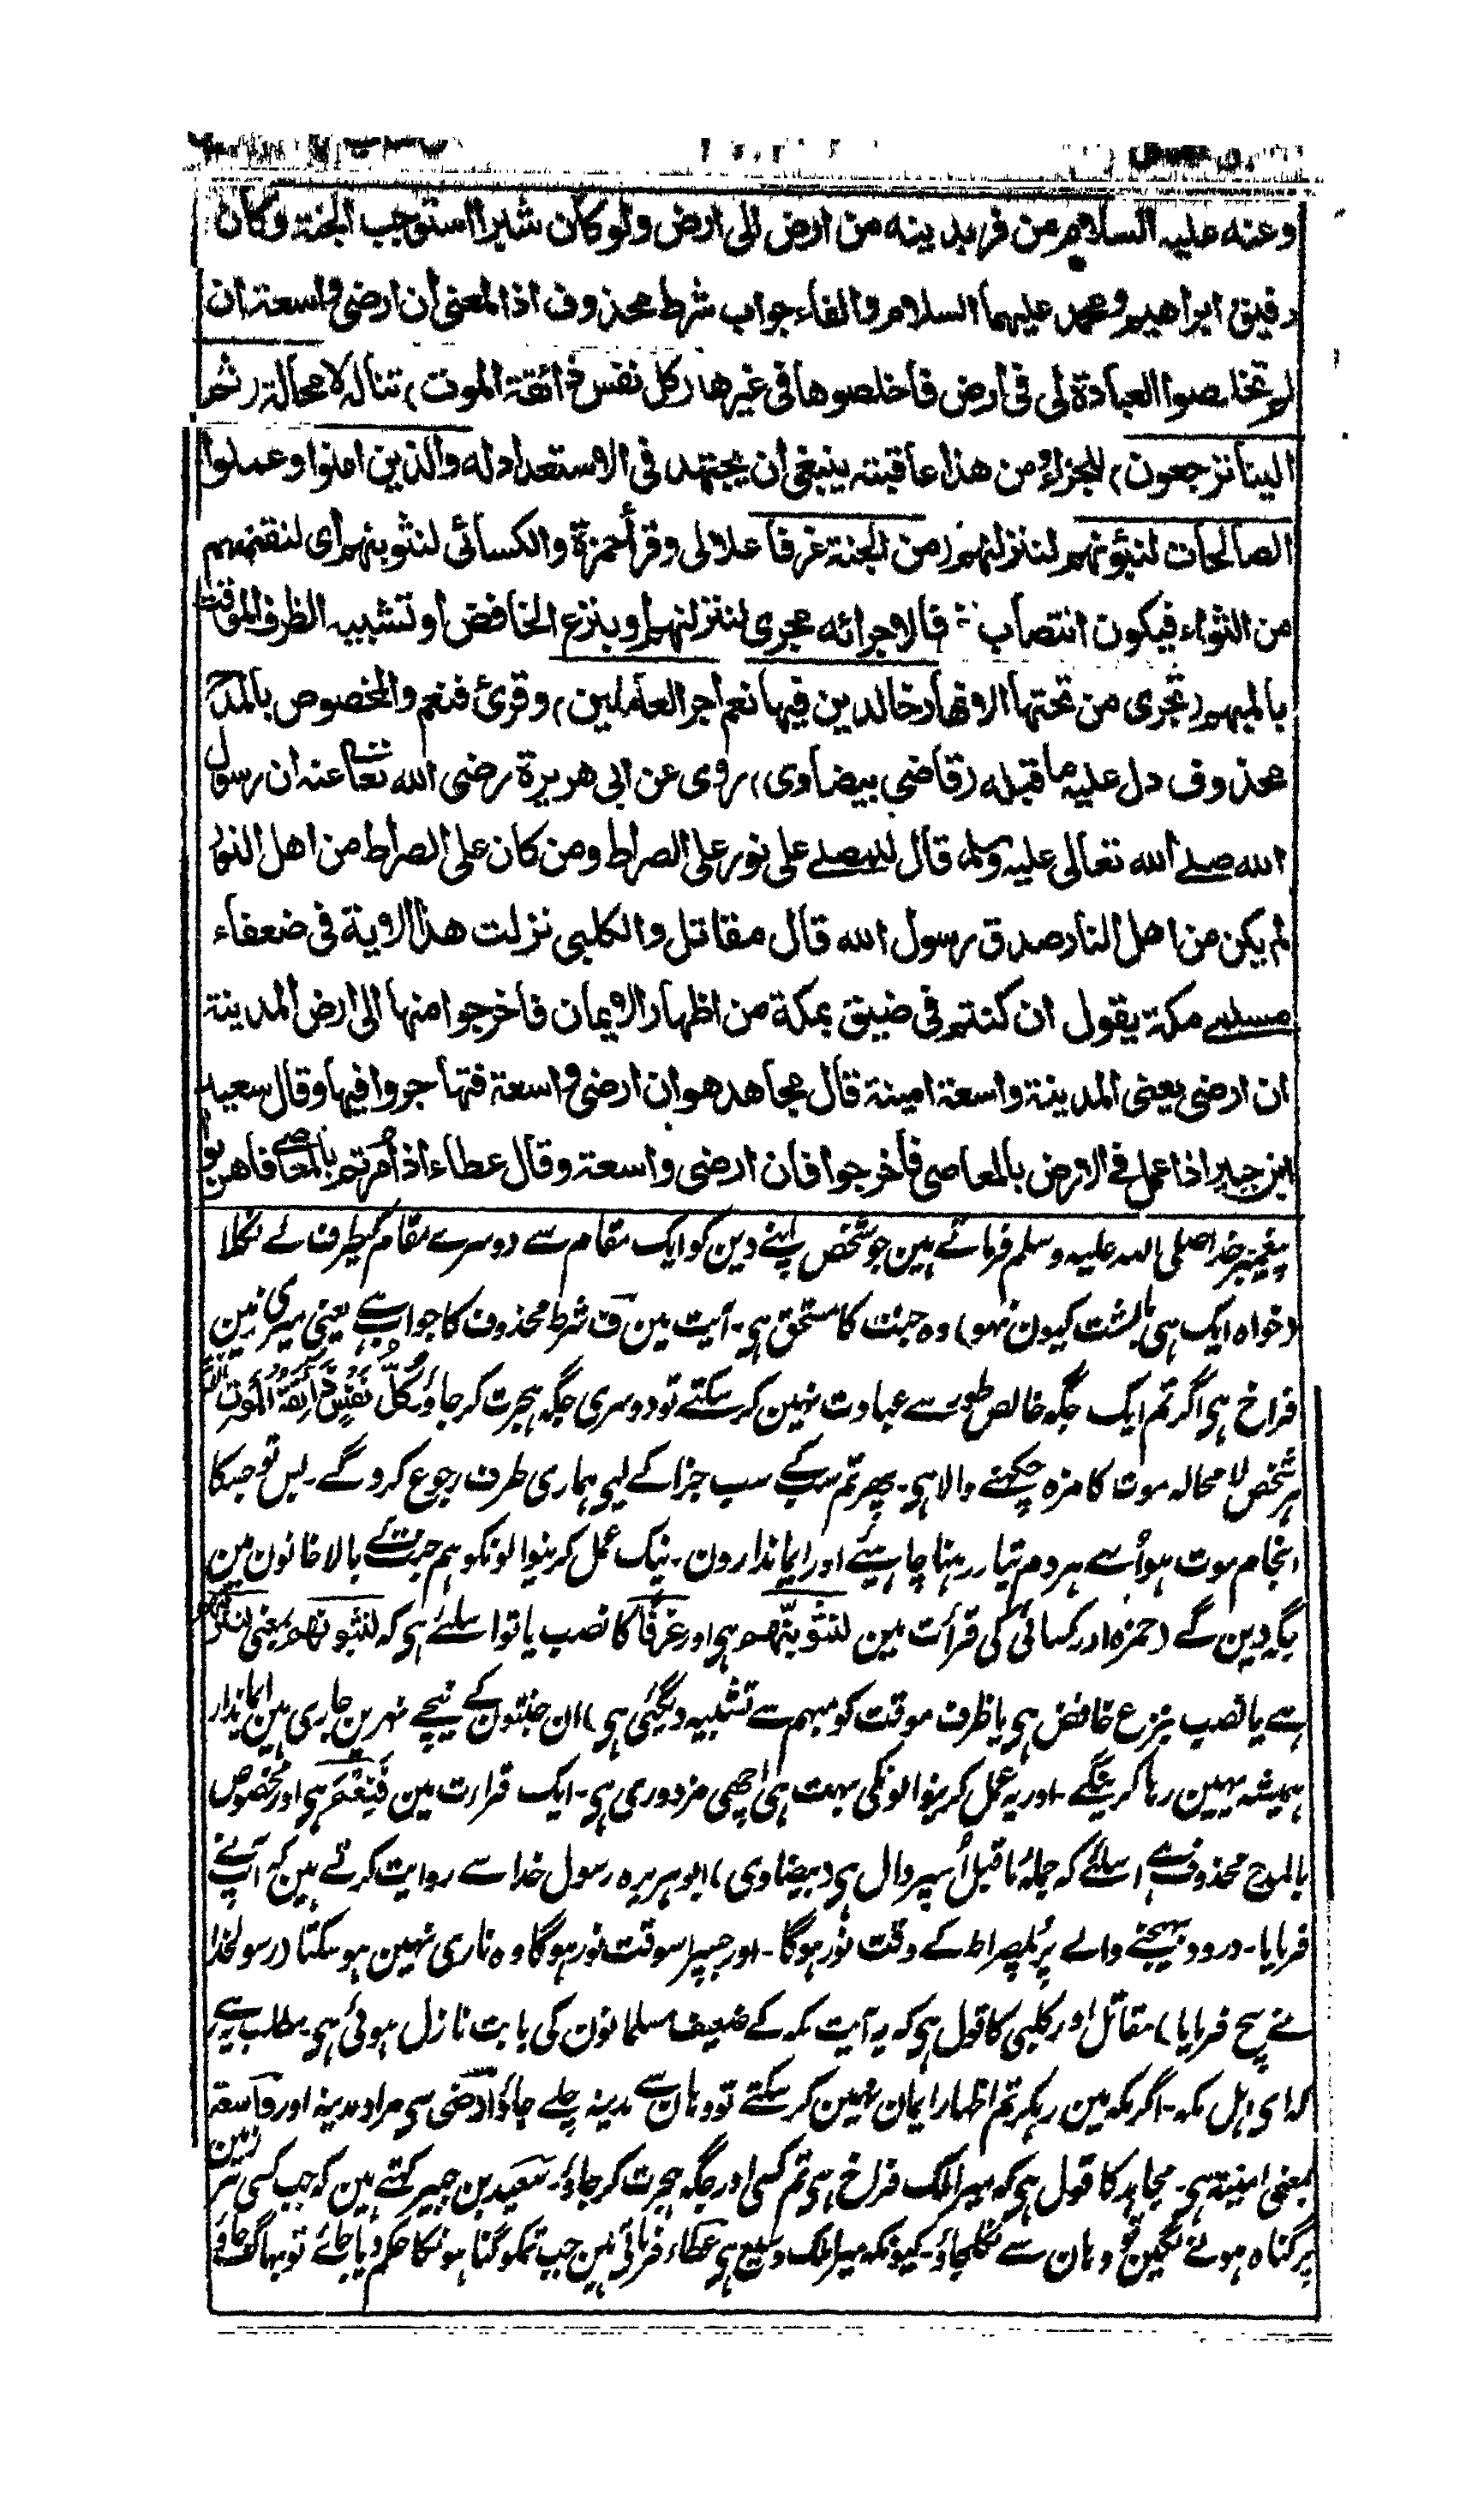 وعنه عليه السلام من فر بدينه من ارض الى ارض ولو كان شبرا استوجب الجنة وكان
رفيق ابراهيم ومحمد عليهما السلام والفاء جواب شرط محذوف اذ المعنى ان ارضى واسعة ان
لم تخلصوا العبادة لى فى ارض فاخلصوها فى غيرها (كل نفس ذائقة الموت) تناله لا محالة (ثم
الينا ترجعون) للجزاء ومن هذا عاقبته ينبغى ان يجتهد فى الاستعداد له والذين امنوا وعملوا
الصالحات لنبوئنهم لننزلنهم (من الجنة غرفا علالى وقرأ حمزة والكسائى لنثوينهم اى لنقيمنهم
من الثواء فيكون انتصاب غرفا لاجرائه مجرى لننزلنهم او بنزع الخافض او تشبيه الظرف الموقت
بالمبهم (تجرى من تحتها الانهار خالدين فيها نعم اجر العاملين) وقرئ فنعم والمخصوص بالمدح
محذوف دل عليه ما قبله (قاضى بيضاوى) روى عن ابى هريرة رضى الله تعالى عنه ان رسول
الله صلے الله تعالى عليه وسلم قال للمصلے على نور على الصراط ومن كان على الصراط من اهل النور
لم يكن من اهل النار صدق رسول الله قال مقاتل والكلبى نزلت هذه الاية فى ضعفاء
مسلمے مكة يقول ان كنتم فى ضيق بمكة من اظهار الايمان فاخرجوا منها الى ارض المدينة
ان ارضى يعنى المدينة واسعة امينة قال مجاهد هو ان ارضى واسعة فتهاجروا فيها وقال سعيد
ابن جبير اذا عمل فے الارض بالمعاصى فاخرجوا فان ارضى واسعة وقال عطاء اذا امرتم بالمعاصے فاهربوا
پیغمبر خدا صلی اللہ علیہ وسلم فرماتے ہین جو شخص اپنے دین کو ایک مقام سے دوسرے مقام کیطرف لے نکلا
(خواہ ایک ہی بالشت کیون نہو) وہ جنت کا مستحق ہی۔ آیت مین ف شرط محذوف کا جواب ہے یعنی میری زمین
فراخ ہی اگر تم ایک جگہ خالص طور سے عبادت نہین کر سکتے تو دوسری جگہ ہجرت کر جاؤ كُلُّ نَفْسٍ ذَائِقَةُ الْمَوْتِ
ہر شخص لا محالہ موت کا مزہ چکھنے والا ہی۔ پھر تم سب کے سب جزا کے لیی ہماری طرف رجوع کروگے۔ پس تو جسکا
انجام موت ہو اُسے ہر دم تیار رہنا چاہیئے اور ایماندارون۔ نیک عمل کرنیوالونکو ہم جنت کے بالا خانون مین
جگہ دین گے (حمزہ اور کسائی کی قرأت مین لنثوينّهم ہی اور غرفًا کا نصب یا تو اسلئے ہی کہ لنثوينهم بمعنی لننزلن
ہے یا نصب بنزع خافض ہی یا ظرف موقت کو مبہم سے تشبیہ دیگئی ہی) ان جنتون کے نیچے نہرین جاری ہین ایماندار
ہمیشہ یہین رہا کرینگے۔ اور یہ عمل کرنیوالونکی بہت ہی اچھی مزدوری ہی۔ ایک قرارت مین فَنِعْمَ ہی اور مخصوص
بالمدح محذوف ہے اسلئے کہ جملۂ ماقبل اُسپر دال ہی (بیضاوی) ابو ہریرہ رسول خدا سے روایت کرتے ہین کہ آپ نے
فرمایا۔ درود بھیجنے والے پر پلصراط کے وقت نور ہوگا۔ اور جسپر اسوقت نور ہوگا وہ ناری نہین ہو سکتا (رسولخدا
نے سچ فرمایا) مقاتل اور کلبی کا قول ہی کہ یہ آیت مکہ کے ضعیف مسلمانون کی بابت نازل ہوئی ہی۔ مطلب یہ ہے
کہ ای اہل مکہ۔ اگر مکہ مین رہکر تم اظہار ایمان نہین کر سکتے تو وہان سے مدینہ چلے جاؤ ارضی سی مراد مدینہ اور واسعة
بمعنی امینة ہی۔ مجاہد کا قول ہی کہ میرا ملک فراخ ہی تم کسی اور جگہ ہجرت کر جاؤ۔ سعید بن جبیر کہتے ہین کہ جب کسی سر زمین
پر گناہ ہونے لگین تو وہان سے نکلجاؤ۔ کیونکہ میرا ملک وسیع ہی عطاء فرماتے ہین جب تمکو گناہونکا حکم دیا جائے تو بھاگ جاؤ